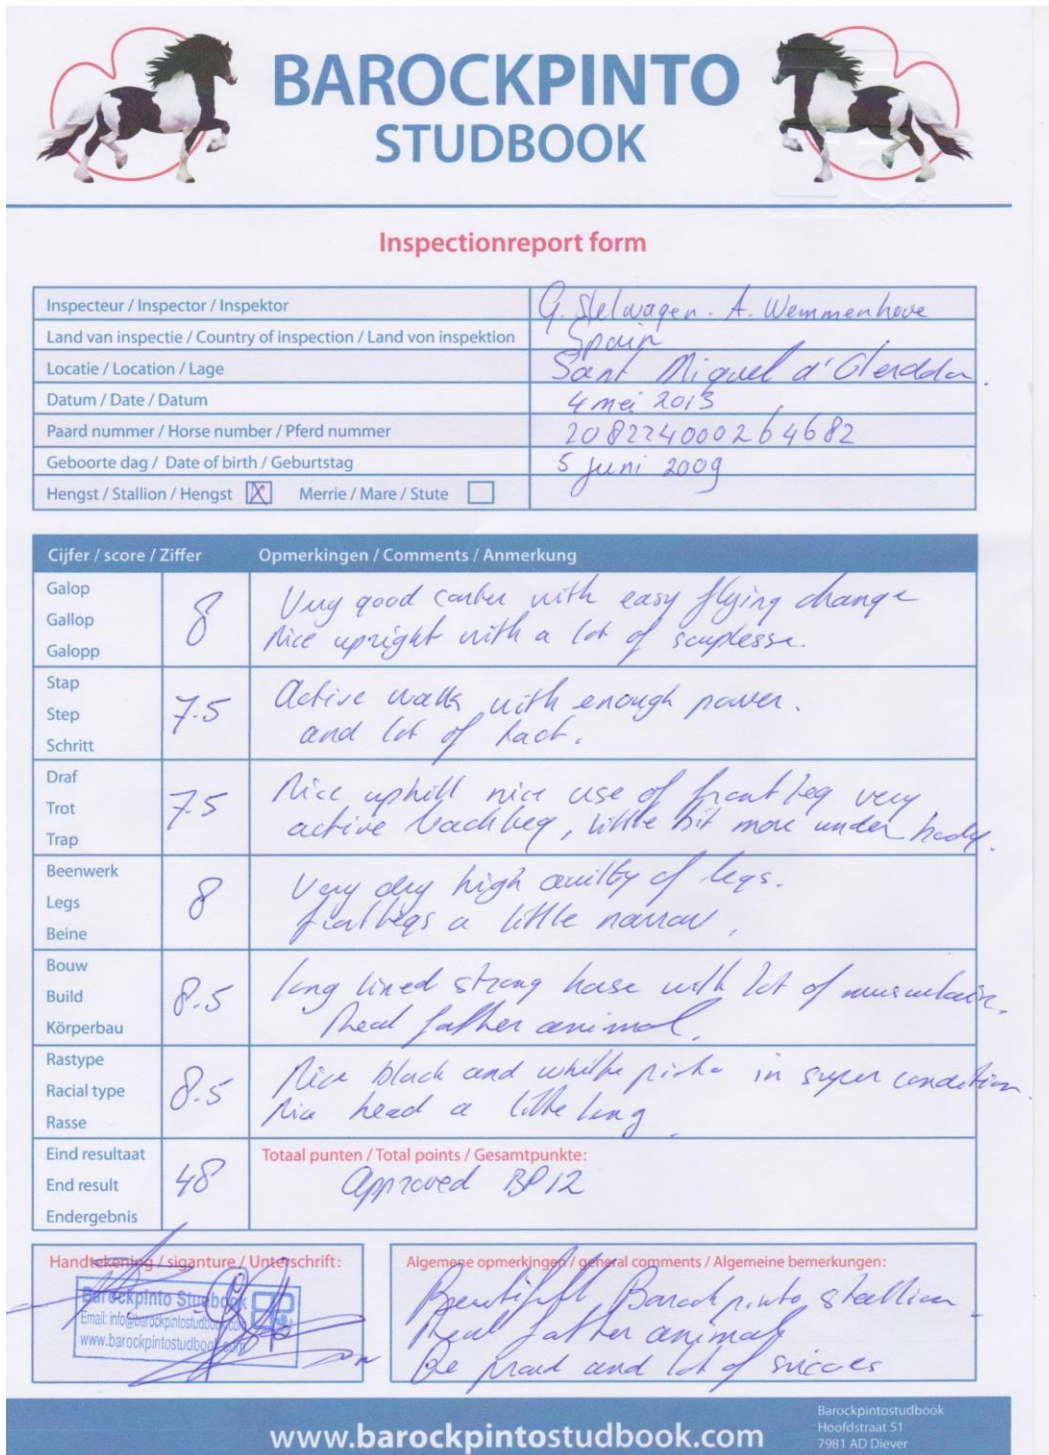 BAROCKPINTO
STUDBOOK
Inspectionreport form
Inspecteur / Inspector / Inspektor G. Stelwagen - A. Wemmenhove
Land van inspectie / Country of inspection / Land von inspektion Spain
Locatie / Location / Lage Sant Miquel d'Olerdola.
Datum / Date / Datum 4 mei 2013
Paard nummer / Horse number / Pferd nummer 208224000264682
Geboorte dag / Date of birth / Geburtstag 5 juni 2009
Hengst / Stallion / Hengst X Merrie / Mare / Stute
Cijfer / score / Ziffer Opmerkingen / Comments / Anmerkung
Galop
Gallop
Galopp
8
Very good canter with easy flying change
Nice upright with a lot of souplesse.
Stap
Step
Schritt
7.5
Active walk with enough power.
and lot of tact.
Draf
Trot
Trap
7.5
Nice uphill nice use of front leg very
active backleg, little bit more under body.
Beenwerk
Legs
Beine
8
Very dry high quality of legs.
frontlegs a little narrow,
Bouw
Build
Körperbau
8.5
long lined strong horse with lot of
Real father animal.
Rastype
Racial type
Rasse
8.5
Nice black and white pinto in super condition.
Nice head a little long.
Eind resultaat
End result
Endergebnis
48
Totaal punten / Total points / Gesamtpunkte:
Approved BP12
Handtekening / siganture / Unterschrift:
Barockpinto Studbook
Email: info@barockpintostudbook.com
www.barockpintostudbook.com
Algemene opmerkingen / general comments / Algemeine bemerkungen:
Beautifull Barockpinto stallion
Real father animal
Be proud and lot of succes
www.barockpintostudbook.com
Barockpintostudbook
Hoofdstraat 51
7981 AD Diever